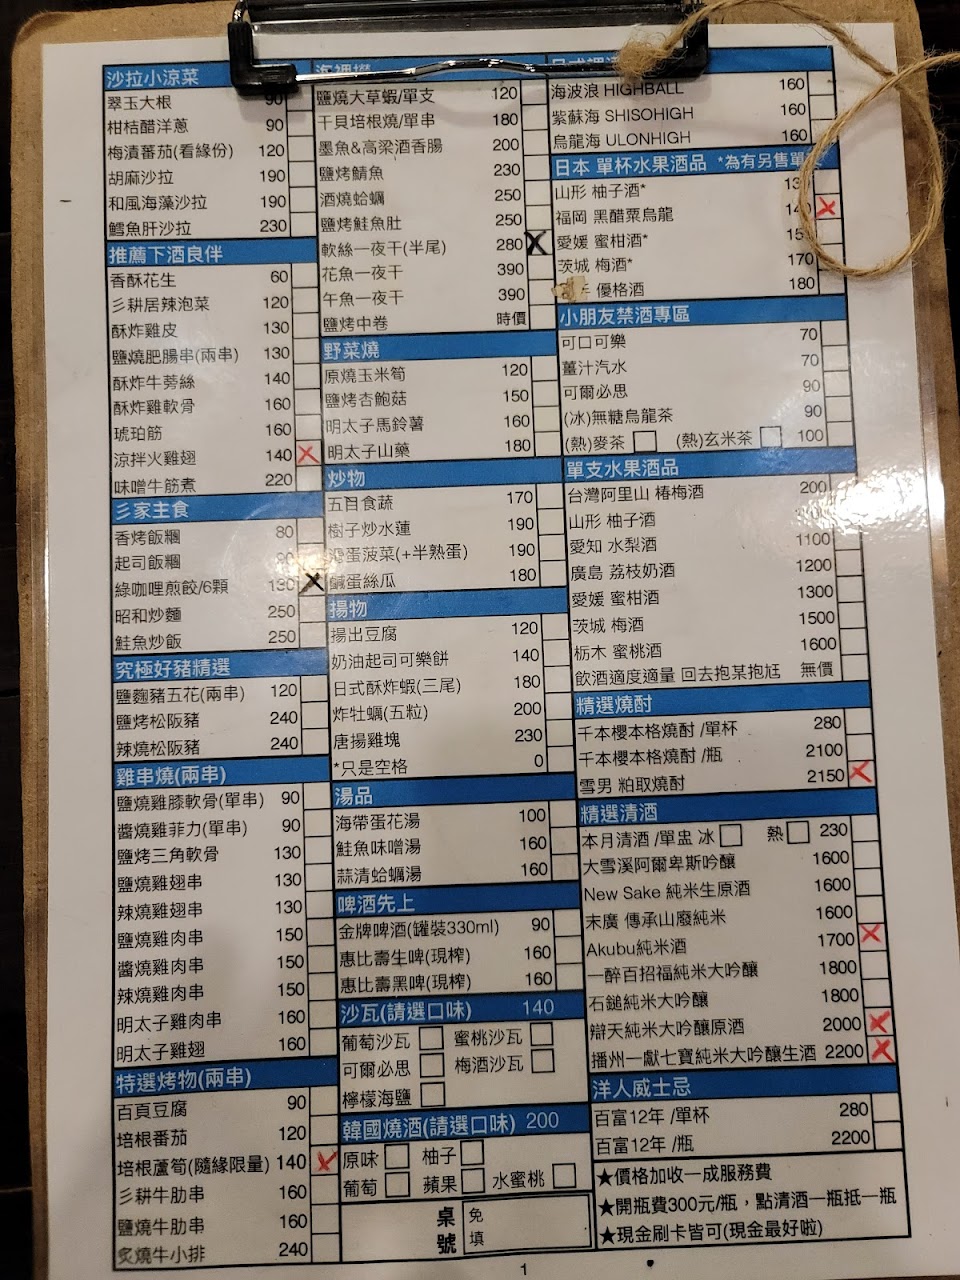 沙拉小涼菜
翠玉大根 90
柑桔醋洋蔥 90
梅漬蕃茄(看緣份) 120
胡麻沙拉 190
和風海藻沙拉 190
鱈魚肝沙拉 230
推薦下酒良伴
香酥花生 60
彡耕居辣泡菜 120
酥炸雞皮 130
鹽燒肥腸串(兩串) 130
酥炸牛蒡絲 140
酥炸雞軟骨 160
琥珀筋 160
涼拌火雞翅 140
味噌牛筋煮 220
彡家主食
香烤飯糰 80
起司飯糰 90
綠咖哩煎餃/6顆 130
昭和炒麵 250
鮭魚炒飯 250
究極好豬精選
鹽麴豬五花(兩串) 120
鹽烤松阪豬 240
辣燒松阪豬 240
雞串燒(兩串)
鹽燒雞膝軟骨(單串) 90
醬燒雞菲力(單串) 90
鹽烤三角軟骨 130
鹽燒雞翅串 130
辣燒雞翅串 130
鹽燒雞肉串 150
醬燒雞肉串 150
辣燒雞肉串 150
明太子雞肉串 160
明太子雞翅 160
特選烤物(兩串)
百頁豆腐 90
培根番茄 120
培根蘆筍(隨緣限量) 140
彡耕牛肋串 160
鹽燒牛肋串 160
炙燒牛小排 240
鹽燒大草蝦/單支 120
干貝培根燒/單串 180
墨魚&高梁酒香腸 200
鹽烤鯖魚 230
酒燒蛤蠣 250
鹽烤鮭魚肚 250
軟絲一夜干(半尾) 280
花魚一夜干 390
午魚一夜干 390
鹽烤中卷 時價
野菜燒
原燒玉米筍 120
鹽烤杏鮑菇 150
明太子馬鈴薯 160
明太子山藥 180
炒物
五目食蔬 170
樹子炒水蓮 190
蛋菠菜(+半熟蛋) 190
鹹蛋絲瓜 180
揚物
揚出豆腐 120
奶油起司可樂餅 140
日式酥炸蝦(三尾) 180
炸牡蠣(五粒) 200
唐揚雞塊 230
*只是空格 0
湯品
海帶蛋花湯 100
鮭魚味噌湯 160
蒜清蛤蠣湯 160
啤酒先上
金牌啤酒(罐裝330ml) 90
惠比壽生啤(現榨) 160
惠比壽黑啤(現榨) 160
沙瓦(請選口味) 140
葡萄沙瓦 蜜桃沙瓦
可爾必思 梅酒沙瓦
檸檬海鹽
韓國燒酒(請選口味) 200
原味 柚子
葡萄 蘋果 水蜜桃
桌號 免填
海波浪 HIGHBALL 160
紫蘇海 SHISOHIGH 160
烏龍海 ULONHIGH 160
日本 單杯水果酒品 *為有另售單
山形 柚子酒* 13
福岡 黑醋栗烏龍 140
愛媛 蜜柑酒* 15
茨城 梅酒* 170
優格酒 180
小朋友禁酒專區
可口可樂 70
薑汁汽水 70
可爾必思 90
(冰)無糖烏龍茶 90
(熱)麥茶 (熱)玄米茶 100
單支水果酒品
台灣阿里山 椿梅酒 200
山形 柚子酒
愛知 水梨酒 1100
廣島 荔枝奶酒 1200
愛媛 蜜柑酒 1300
茨城 梅酒 1500
栃木 蜜桃酒 1600
飲酒適度適量 回去抱某抱尪 無價
精選燒酎
千本櫻本格燒酎 /單杯 280
千本櫻本格燒酎 /瓶 2100
雪男 粕取燒酎 2150
精選清酒
本月清酒 /單盅 冰 熱 230
大雪溪阿爾卑斯吟釀 1600
New Sake 純米生原酒 1600
末廣 傳承山廢純米 1600
Akubu純米酒 1700
一醉百招福純米大吟釀 1800
石鎚純米大吟釀 1800
辯天純米大吟釀原酒 2000
播州一獻七寶純米大吟釀生酒 2200
洋人威士忌
百富12年 /單杯 280
百富12年 /瓶 2200
★價格加收一成服務費
★開瓶費300元/瓶，點清酒一瓶抵一瓶
★現金刷卡皆可(現金最好啦)
1